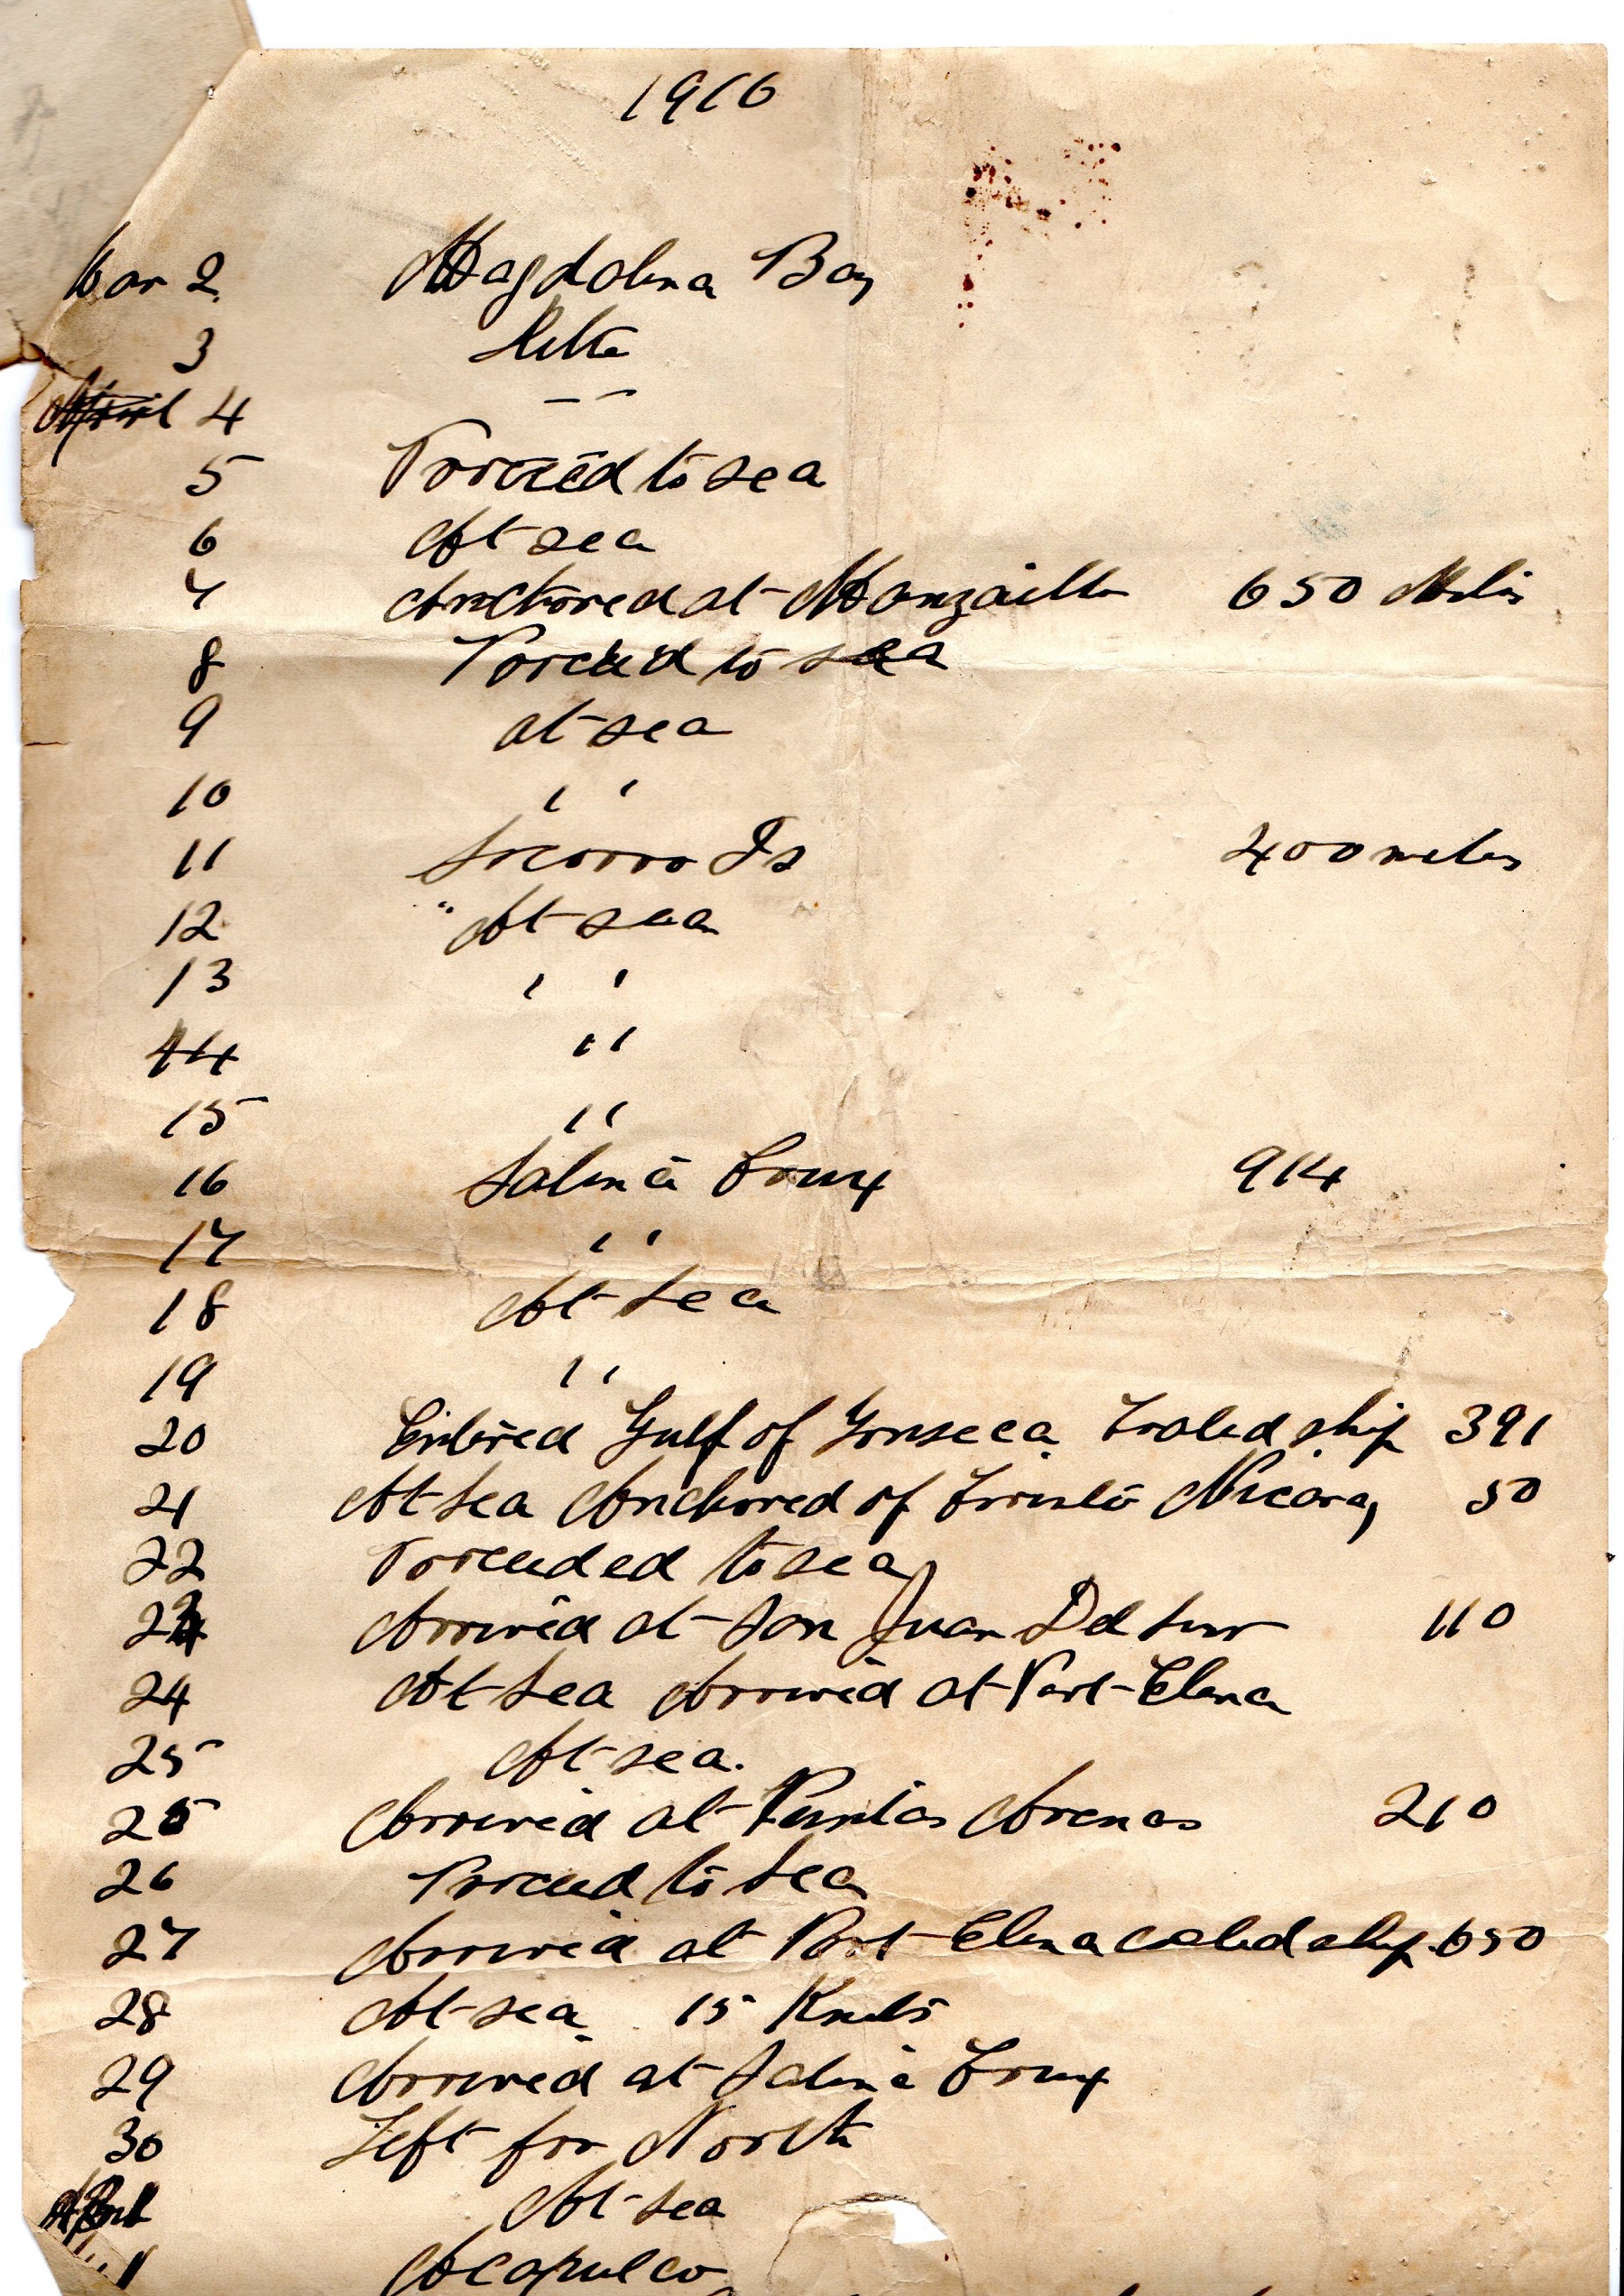 1916
Mar 2 Magdalena Bay
3 Ditto
4 — —
5 Proceed to sea
6 At sea
7 Anchored at Manzaillo 650 Miles
8 Proceed to sea
9 at sea
10 ' '
11 Socorro Is 400 miles
12 " At sea
13 ' '
14 ' '
15 ' '
16 Salina Crux 914
17 ' '
18 At Sea
19 ' '
20 Entered Gulf of Fonseca Coaled ship 391
21 At Sea Anchored of Corinto Nicarag 50
22 Proceeded to sea
23 Arrived at San Juan Del Sur 110
24 At Sea Arrived at Port Elena
25 At sea.
25 Arrived at Puntas Arenas 210
26 Proceed to Sea
27 Arrived at Port Elena coaled ship. 650
28 At sea 15 Knots
29 Arrived at Salina Crux
30 Left for North
April At sea
1 Acapulco